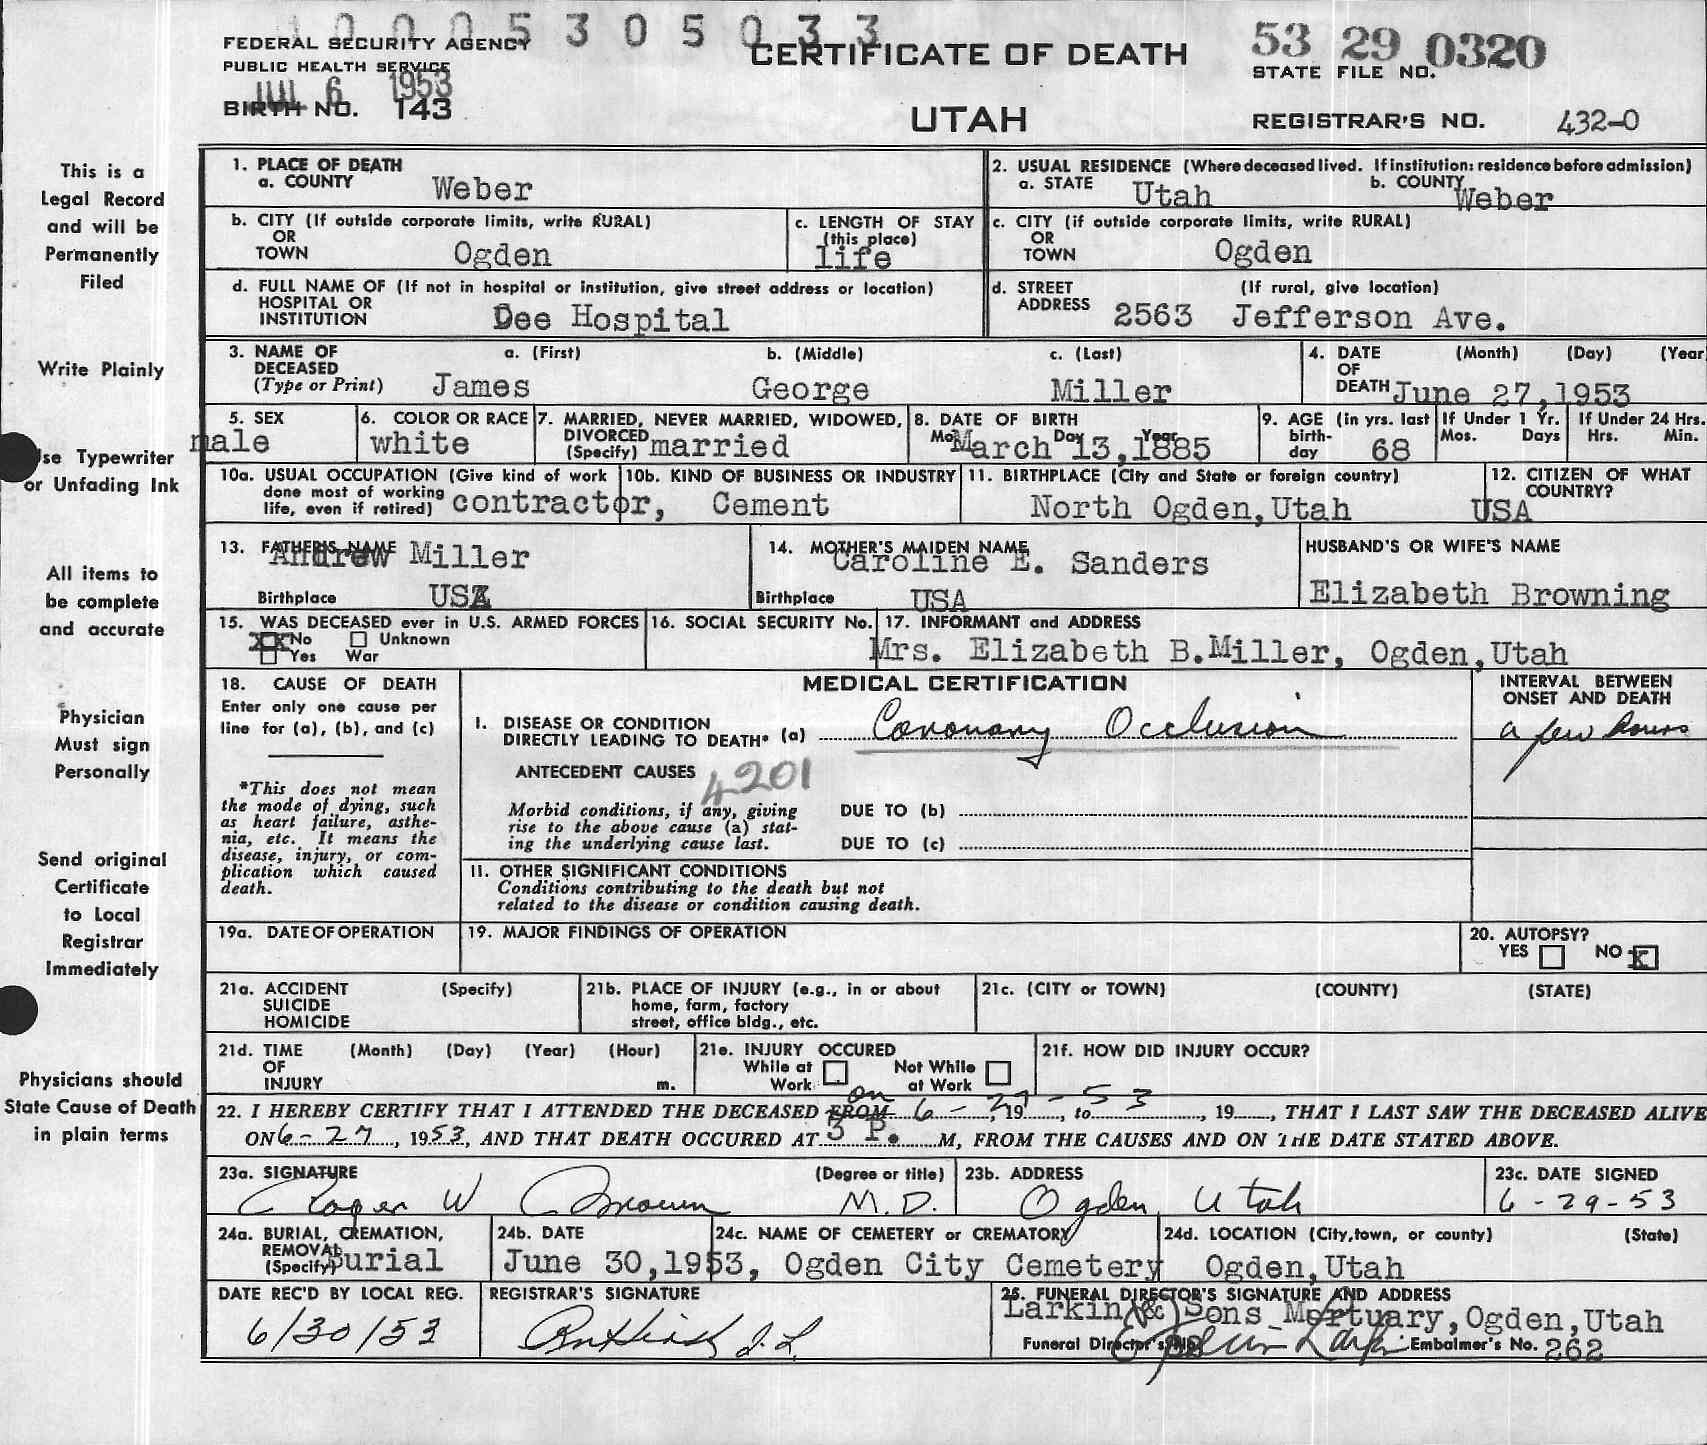 0 0 0 5 3 0 5 0 3 3
FEDERAL SECURITY AGENCY
PUBLIC HEALTH SERVICE
JUL 6 1953
BIRTH NO. 143
CERTIFICATE OF DEATH
UTAH
53 29 0320
STATE FILE NO.
REGISTRAR'S NO. 432-0
This is a
Legal Record
and will be
Permanently
Filed
Write Plainly
se Typewriter
or Unfading Ink
All items to
be complete
and accurate
Physician
Must sign
Personally
Send original
Certificate
to Local
Registrar
Immediately
Physicians should
State Cause of Death
in plain terms
1. PLACE OF DEATH
a. COUNTY Weber
2. USUAL RESIDENCE (Where deceased lived. If institution: residence before admission)
a. STATE Utah b. COUNTY Weber
b. CITY (If outside corporate limits, write RURAL)
OR
TOWN Ogden
c. LENGTH OF STAY
(this place)
life
c. CITY (if outside corporate limits, write RURAL)
OR
TOWN Ogden
d. FULL NAME OF (If not in hospital or institution, give street address or location)
HOSPITAL OR
INSTITUTION Dee Hospital
d. STREET (If rural, give location)
ADDRESS 2563 Jefferson Ave.
3. NAME OF
DECEASED
(Type or Print)
a. (First) b. (Middle) c. (Last)
James George Miller
4. DATE (Month) (Day) (Year
OF
DEATH June 27,1953
5. SEX
male
6. COLOR OR RACE
white
7. MARRIED, NEVER MARRIED, WIDOWED,
DIVORCED
(Specify) married
8. DATE OF BIRTH
Mo. Day Year
March 13,1885
9. AGE (in yrs. last
birth-
day 68
If Under 1 Yr.
Mos. Days
If Under 24 Hrs.
Hrs. Min.
10a. USUAL OCCUPATION (Give kind of work
done most of working
life, even if retired) contractor,
10b. KIND OF BUSINESS OR INDUSTRY
Cement
11. BIRTHPLACE (City and State or foreign country)
North Ogden,Utah
12. CITIZEN OF WHAT
COUNTRY?
USA
13. FATHER'S NAME
Andrew Miller
Birthplace USA
14. MOTHER'S MAIDEN NAME
Caroline E. Sanders
Birthplace USA
HUSBAND'S OR WIFE'S NAME
Elizabeth Browning
15. WAS DECEASED ever in U.S. ARMED FORCES
XX No Unknown
Yes War
16. SOCIAL SECURITY No.
17. INFORMANT and ADDRESS
Mrs. Elizabeth B.Miller, Ogden,Utah
18. CAUSE OF DEATH
Enter only one cause per
line for (a), (b), and (c)
*This does not mean
the mode of dying, such
as heart failure, asthe-
nia, etc. It means the
disease, injury, or com-
plication which caused
death.
MEDICAL CERTIFICATION
I. DISEASE OR CONDITION
DIRECTLY LEADING TO DEATH* (a) Coronary Occlusion
ANTECEDENT CAUSES 4201
Morbid conditions, if any, giving
rise to the above cause (a) stat-
ing the underlying cause last.
DUE TO (b)
DUE TO (c)
INTERVAL BETWEEN
ONSET AND DEATH
a few hours
11. OTHER SIGNIFICANT CONDITIONS
Conditions contributing to the death but not
related to the disease or condition causing death.
19a. DATE OF OPERATION
19. MAJOR FINDINGS OF OPERATION
20. AUTOPSY?
YES NO X
21a. ACCIDENT (Specify)
SUICIDE
HOMICIDE
21b. PLACE OF INJURY (e.g., in or about
home, farm, factory
street, office bldg., etc.
21c. (CITY or TOWN) (COUNTY) (STATE)
21d. TIME (Month) (Day) (Year) (Hour)
OF
INJURY m.
21e. INJURY OCCURED
While at Not While
Work at Work
21f. HOW DID INJURY OCCUR?
on
22. I HEREBY CERTIFY THAT I ATTENDED THE DECEASED FROM 6 - 27, 19 - to 53, 19, THAT I LAST SAW THE DECEASED ALIVE
ON 6-27, 1953, AND THAT DEATH OCCURED AT 3 P. M, FROM THE CAUSES AND ON THE DATE STATED ABOVE.
23a. SIGNATURE (Degree or title)
W Brown M.D.
23b. ADDRESS
Ogden, Utah
23c. DATE SIGNED
6-29-53
24a. BURIAL, CREMATION,
REMOVAL
(Specify) burial
24b. DATE
June 30,1953,
24c. NAME OF CEMETERY or CREMATORY
Ogden City Cemetery
24d. LOCATION (City,town, or county) (State)
Ogden,Utah
DATE REC'D BY LOCAL REG.
6/30/53
REGISTRAR'S SIGNATURE
25. FUNERAL DIRECTOR'S SIGNATURE AND ADDRESS
Larkin & Sons Mortuary,Ogden,Utah
Funeral Director's Larkin Embalmer's No. 262